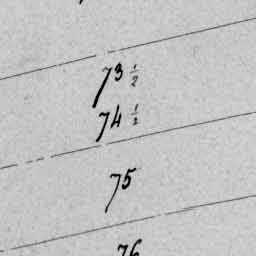 73 ½
74 ½
75
76